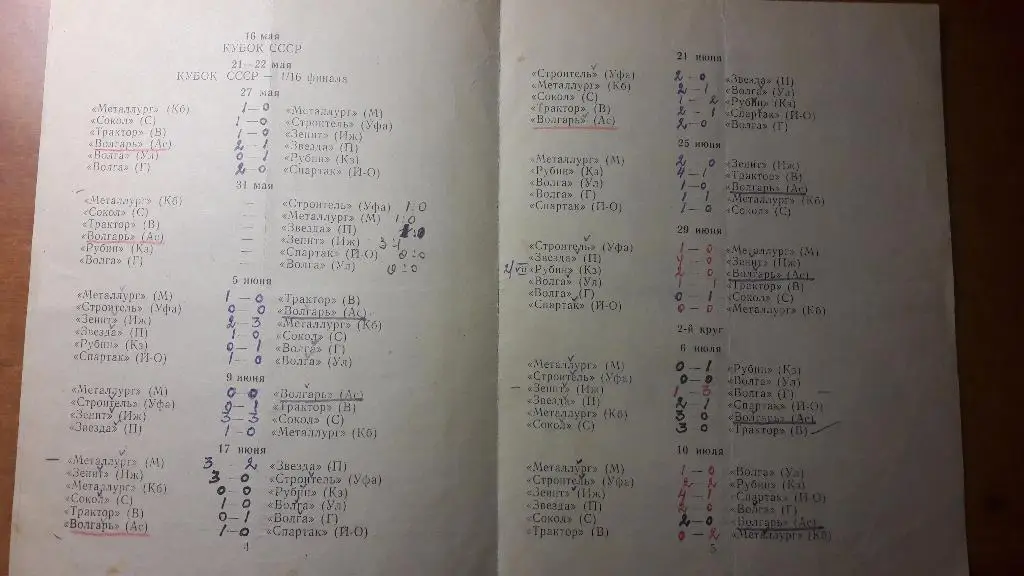 16 мая
КУБОК СССР
21—22 мая
КУБОК СССР — 1/16 финала
27 мая
«Металлург» (Кб) 1—0 «Металлург» (М)
«Сокол» (С) 1—0 «Строитель» (Уфа)
«Трактор» (В) 1—0 «Зенит» (Иж)
«Волгарь» (Ас) 2—1 «Звезда» (П)
«Волга» (Ул) 0—1 «Рубин» (Кз)
«Волга» (Г) 2—0 «Спартак» (Й-О)
31 мая
«Металлург» (Кб) — «Строитель» (Уфа) 1:0
«Сокол» (С) — «Металлург» (М) 1:0
«Трактор» (В) — «Звезда» (П) :0
«Волгарь» (Ас) — «Зенит» (Иж) 3
«Рубин» (Кз) — «Спартак» (Й-О) 0:0
«Волга» (Г) — «Волга» (Ул) 0:0
5 июня
«Металлург» (М) 1—0 «Трактор» (В)
«Строитель» (Уфа) 0—0 «Волгарь» (Ас)
«Зенит» (Иж) 2—3 «Металлург» (Кб)
«Звезда» (П) 1—0 «Сокол» (С)
«Рубин» (Кз) 0—1 «Волга» (Г)
«Спартак» (Й-О) 1—0 «Волга» (Ул)
9 июня
«Металлург» (М) 0—0 «Волгарь» (Ас)
«Строитель» (Уфа) 0—1 «Трактор» (В)
«Зенит» (Иж) 3—3 «Сокол» (С)
«Звезда» (П) 1—0 «Металлург» (Кб)
17 июня
«Металлург» (М) 3—2 «Звезда» (П)
«Зенит» (Иж) 3—0 «Строитель» (Уфа)
«Металлург» (Кб) 0—0 «Рубин» (Кз)
«Сокол» (С) 1—0 «Волга» (Ул)
«Трактор» (В) 0—1 «Волга» (Г)
«Волгарь» (Ас) 1—0 «Спартак» (Й-О)
4
21 июня
«Строитель» (Уфа) 2—0 «Звезда» (П)
«Металлург» (Кб) 2—1 «Волга» (Ул)
«Сокол» (С) 1—2 «Рубин» (Кз)
«Трактор» (В) 2—1 «Спартак» (Й-О)
«Волгарь» (Ас) 2—0 «Волга» (Г)
25 июня
«Металлург» (М) 2—0 «Зенит» (Иж)
«Рубин» (Кз) 4—1 «Трактор» (В)
«Волга» (Ул) 1—0 «Волгарь» (Ас)
«Волга» (Г) 1—1 «Металлург» (Кб)
«Спартак» (Й-О) 1—0 «Сокол» (С)
29 июня
«Строитель» (Уфа) 1—0 «Металлург» (М)
«Звезда» (П) —0 «Зенит» (Иж)
2/VII «Рубин» (Кз) 2—0 «Волгарь» (Ас)
«Волга» (Ул) 1—1 «Трактор» (В)
«Волга» (Г) 0—1 «Сокол» (С)
«Спартак» (Й-О) 0—0 «Металлург» (Кб)
2-й круг
6 июля
«Металлург» (М) 0—1 «Рубин» (Кз)
«Строитель» (Уфа) 0—0 «Волга» (Ул)
«Зенит» (Иж) 1—3 «Волга» (Г)
«Звезда» (П) 2—1 «Спартак» (Й-О)
«Металлург» (Кб) 3—0 «Волгарь» (Ас)
«Сокол» (С) 3—0 «Трактор» (В)
10 июля
«Металлург» (М) 1—0 «Волга» (Ул)
«Строитель» (Уфа) 2—2 «Рубин» (Кз)
«Зенит» (Иж) 4—1 «Спартак» (Й-О)
«Звезда» (П) 2—0 «Волга» (Г)
«Сокол» (С) 2—0 «Волгарь» (Ас)
«Трактор» (В) 0—2 «Металлург» (Кб)
5